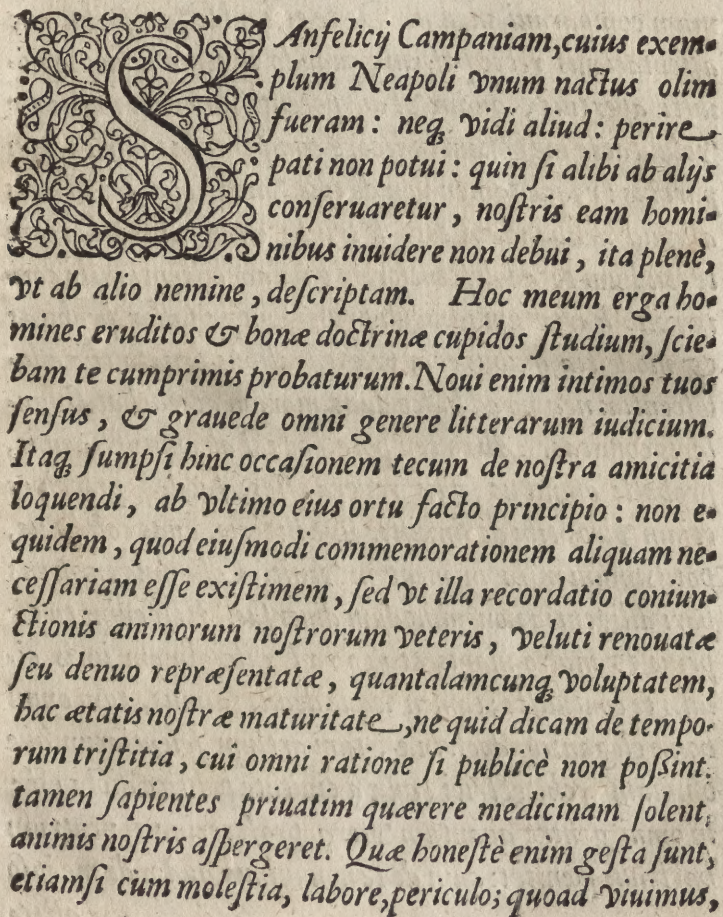 SAnfelicij Campaniam, cuius exem-
plum Neapoli vnum nactus olim
fueram: neq; vidi aliud: perire
pati non potui: quin ſi alibi ab alijs
conſeruaretur, noſtris eam homi-
nibus inuidere non debui, ita plenè,
vt ab alio nemine, deſcriptam. Hoc meum erga ho-
mines eruditos & bonæ doctrinæ cupidos ſtudium, ſcie-
bam te cumprimis probaturum. Noui enim intimos tuos
ſenſus, & grauede omni genere litterarum iudicium.
Itaq; ſumpſi hinc occaſionem tecum de noſtra amicitia
loquendi, ab vltimo eius ortu facto principio: non e-
quidem, quod eiuſmodi commemorationem aliquam ne-
ceſſariam eſſe exiſtimem, ſed vt illa recordatio coniun-
ctionis animorum noſtrorum veteris, veluti renouatæ
ſeu denuo repræſentatæ, quantalamcunq; voluptatem,
hac ætatis noſtræ maturitate, ne quid dicam de tempo-
rum triſtitia, cui omni ratione ſi publicè non poßint,
tamen ſapientes priuatim quærere medicinam ſolent,
animis noſtris aſpergeret. Quæ honeſtè enim geſta ſunt,
etiamſi cum moleſtia, labore, periculo; quoad viuimus,